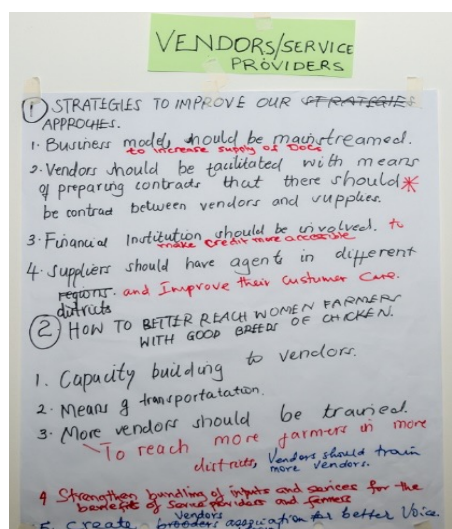 VENDORS/SERVICE
PROVIDERS
1 STRATEGIES TO IMPROVE OUR STRATEGIES
APPROCHES.
1. Business models should be mainstreamed.
to increase supply of DOCs
2. Vendors should be facilitated with means
of preparing contracts that there should *
be contrad between vendors and supplies.
3. Financial Institution should be involved. to
make credit more accessible
4. Suppliers should have agents in different
regions. and Improve their Customer Care.
districts
2 HOW TO BETTER REACH WOMEN FARMERS
WITH GOOD BREEDS OF CHICKEN.
1. Capacity building to vendors.
2. Means of transportatation.
3. More vendors should be trained.
To reach more farmers in more
districts, Vendors should train
more vendors.
4 Strengthen bundling of inputs and services for the
benefits of service providers and farmers
Vendors
5. Create brooders association for better Voice.